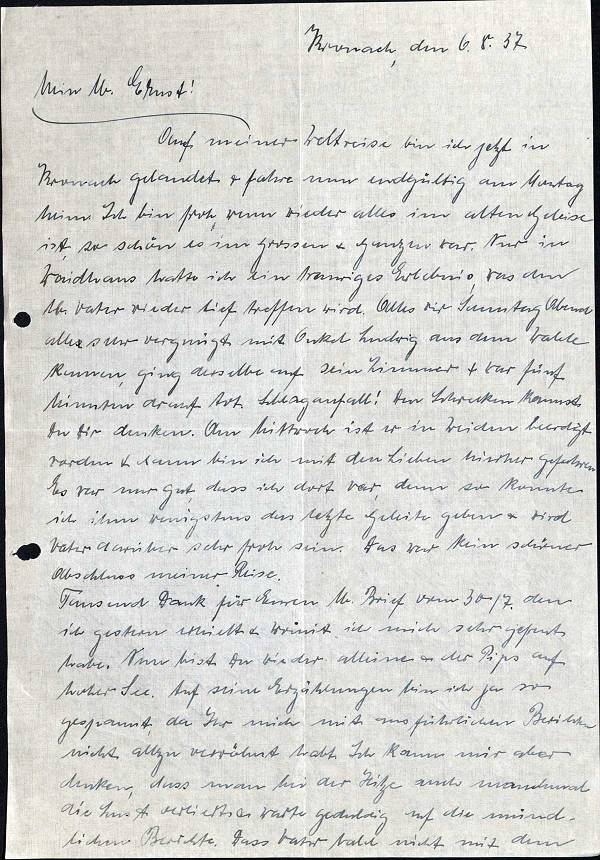 Kronach, den 6.8.37
Mein lb. Ernst!
Auf meiner Weltreise bin ich jetzt in
Kronach gelandet & fahre nun endgültig am Montag
heim. Ich bin froh, wenn wieder alles im alten Geleise
ist, so schön es im grossen & ganzen war. Nur in
Waidhaus hatte ich ein trauriges Erlebnis, was den
lb. Vater wieder tief treffen wird. Als wir Sonntag Abend
alle sehr vergnügt mit Onkel Ludwig aus dem Walde
kamen, ging derselbe auf sein Zimmer & war fünf
Minuten drauf tot. Schlaganfall! Den Schrecken kannst
Du Dir denken. Am Mittwoch ist er in Weiden beerdigt
worden & dann bin ich mit den Lieben hierher gefahren.
Es war nur gut, dass ich dort war, denn so konnte
ich ihm wenigstens das letzte Geleite geben & wird
Vater darüber sehr froh sein. Das war kein schöner
Abschluss meiner Reise.
Tausend Dank für Euren lb. Brief vom 30./7. den
ich gestern erhielt & womit ich mich sehr gefreut
habe. Nun bist Du wieder alleine & der Pips auf
hoher See. Auf seine Erzählungen bin ich ja so
gespannt, da Ihr mich mit ausführlichen Berichten
nicht allzu verwöhnt habt. Ich kann mir aber
denken, dass man bei der Hitze auch manchmal
die Lust verliert & warte geduldig auf die münd-
lichen Berichte. Dass Vater bald nicht mit dem